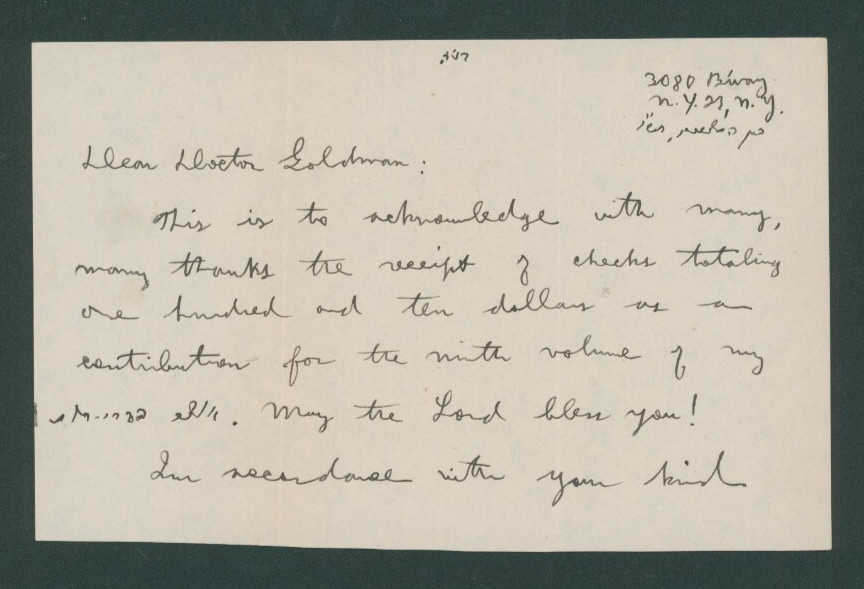 3080 B'way
N.Y. 27, N.Y.
Dear Doctor Goldman:
This is to acknowledge with many,
many thanks the receipt of checks totaling
one hundred and ten dollars as a
contribution for the ninth volume of my
. May the Lord bless you!
In accordance with your kind